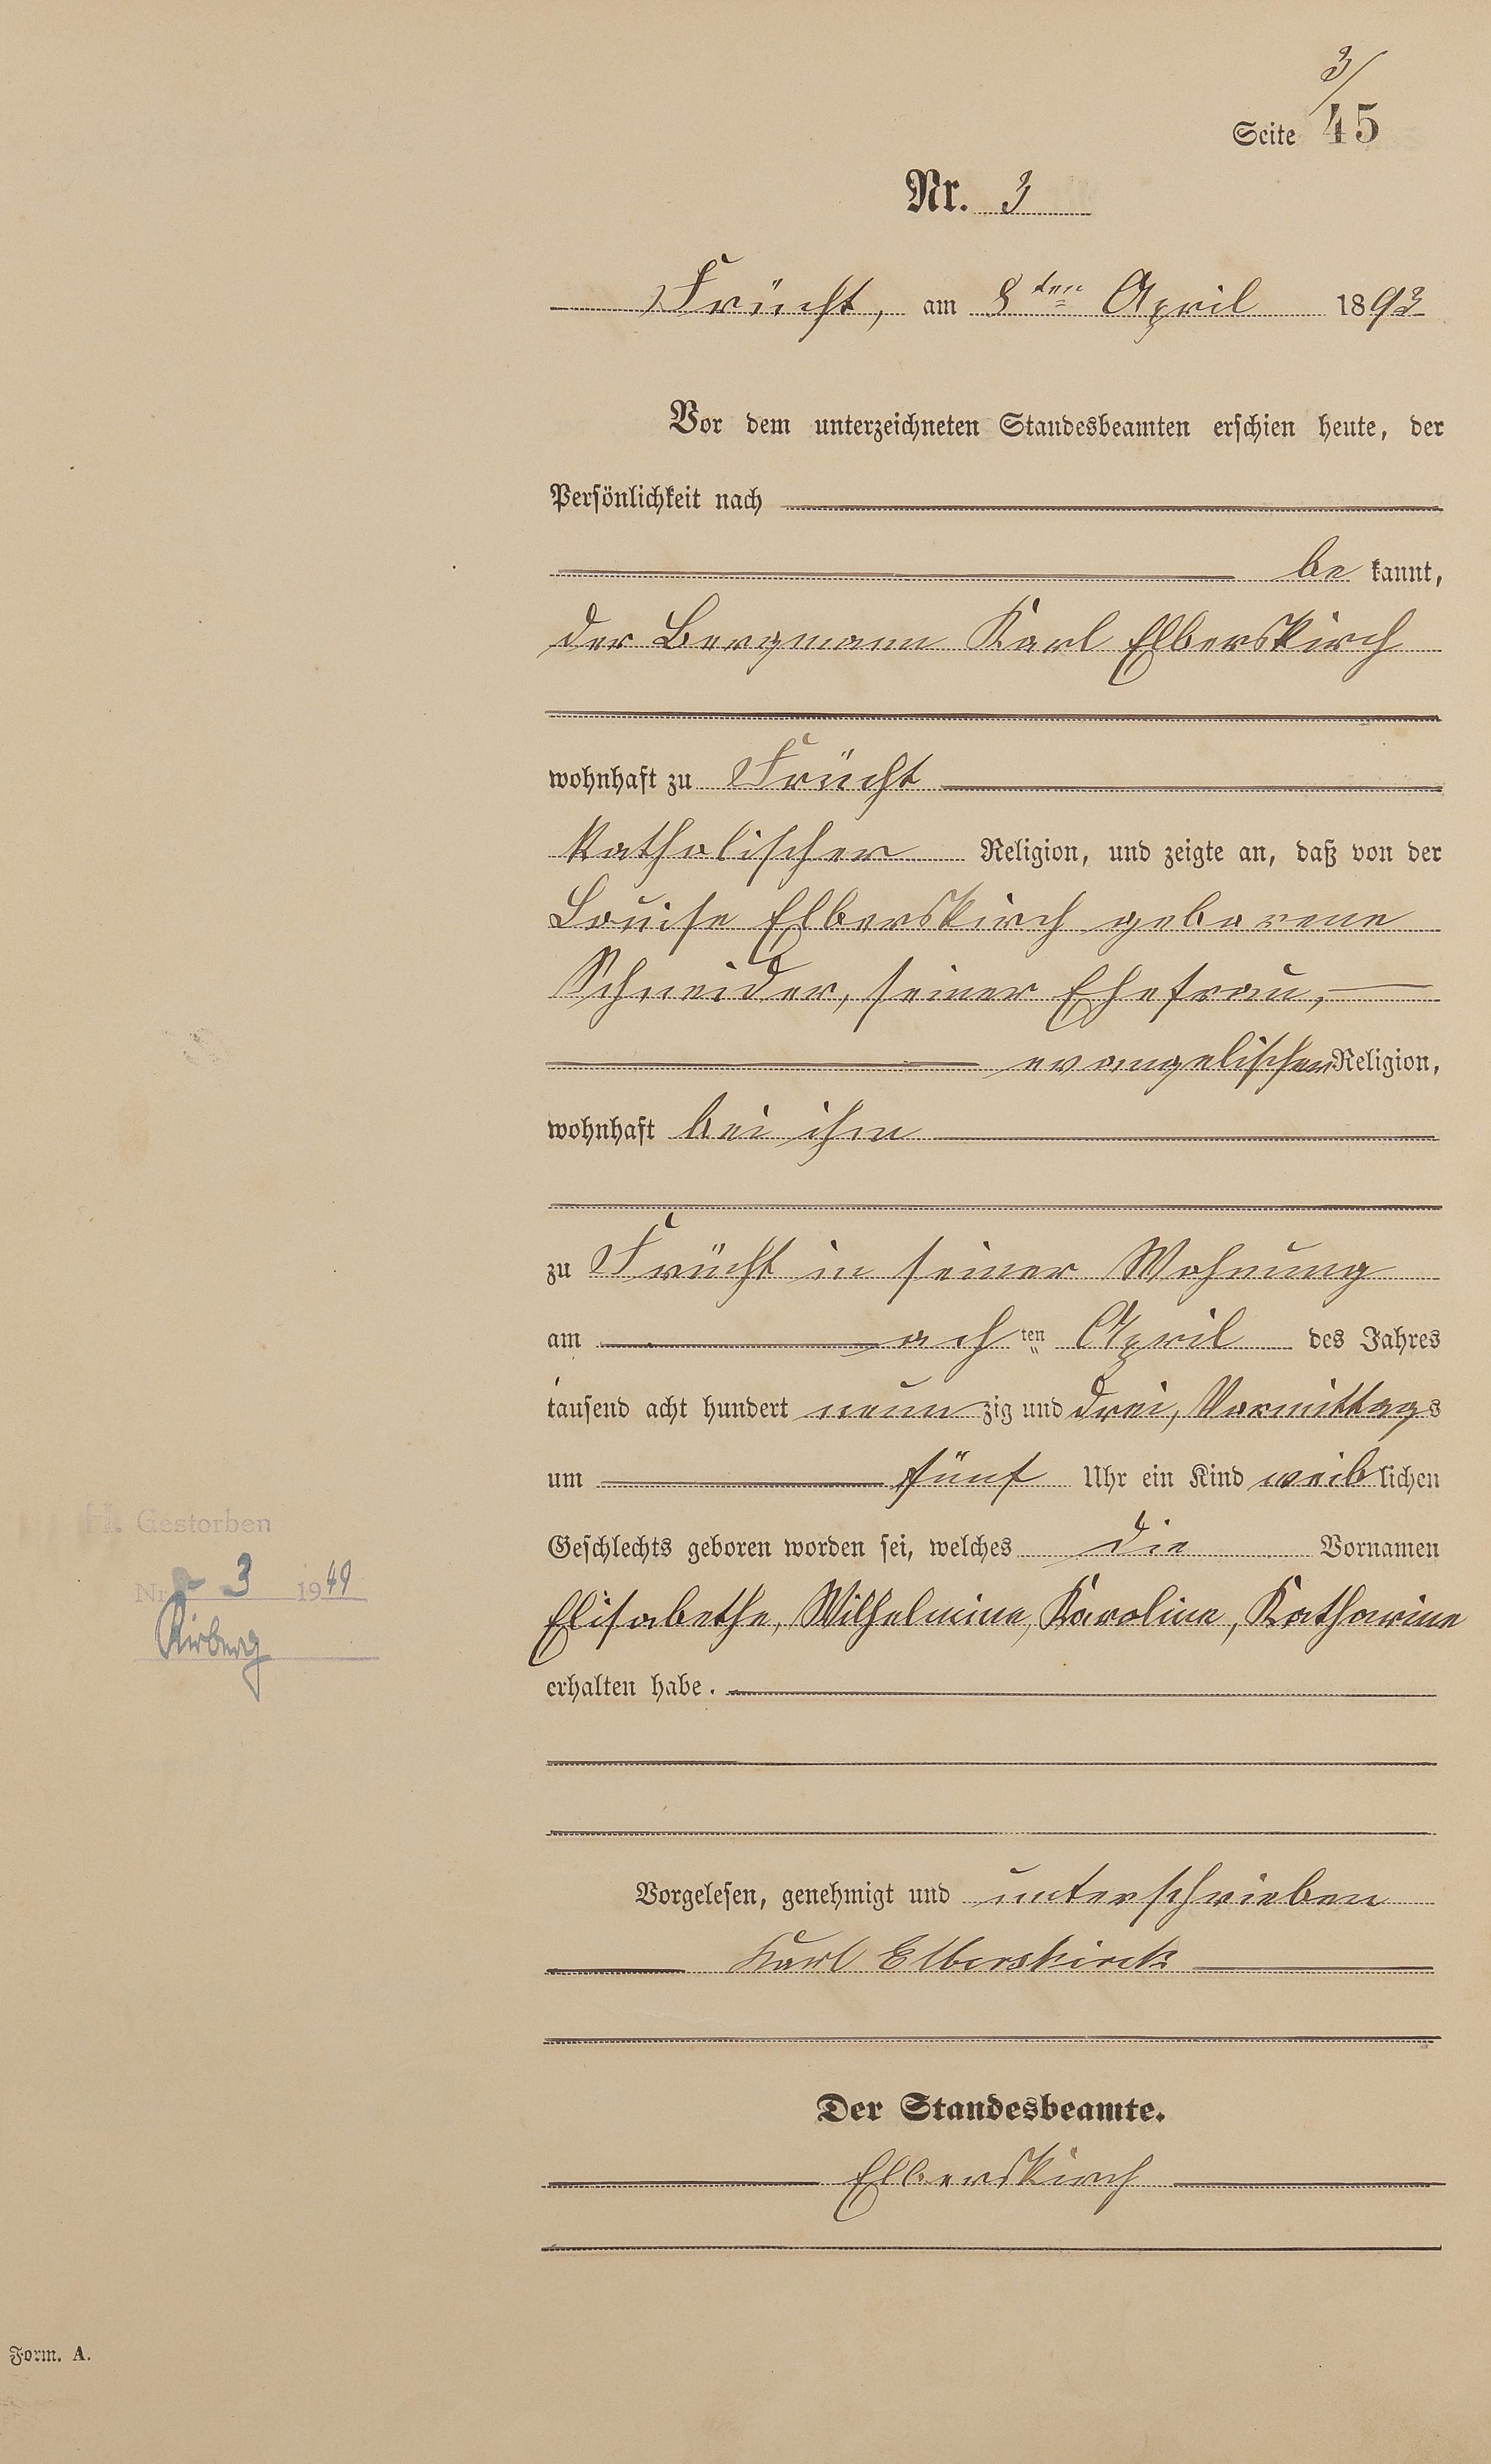 3/
Seite 45
Nr. 3
Frücht, am 8ten April 1893
Vor dem unterzeichneten Standesbeamten erschien heute, der
Persönlichkeit nach
be kannt,
der Bergmann Karl Elberskirch
wohnhaft zu Frücht
katholischer Religion, und zeigte an, daß von der
Louise Elberskirch geborene
Schneider, seiner Ehefrau,
evangelischer Religion,
wohnhaft bei ihm
zu Frücht in seiner Wohnung
am achten April des Jahres
tausend acht hundert neunzig und drei, Vormittags
um fünf Uhr ein Kind weiblichen
Geschlechts geboren worden sei, welches die Vornamen
Elisabethe, Wilhelmine, Karoline, Katharine
erhalten habe.
H. Gestorben
Nr. 3 1949
Kirberg
Vorgelesen, genehmigt und unterschrieben
Karl Elberskirch
Der Standesbeamte.
Elberskirch
Form. A.